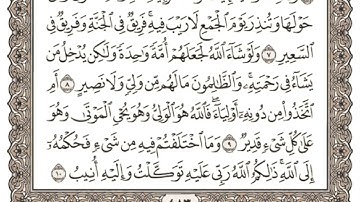 حَوْلَهَا وَتُنذِرَ يَوْمَ ٱلْجَمْعِ لَا رَيْبَ فِيهِ ۚ فَرِيقٌ فِى ٱلْجَنَّةِ وَفَرِيقٌ فِى
ٱلسَّعِيرِ ٧ وَلَوْ شَآءَ ٱللَّهُ لَجَعَلَهُمْ أُمَّةً وَٰحِدَةً وَلَٰكِن يُدْخِلُ مَن
يَشَآءُ فِى رَحْمَتِهِۦ ۚ وَٱلظَّٰلِمُونَ مَا لَهُم مِّن وَلِىٍّ وَلَا نَصِيرٍ ٨ أَمِ
ٱتَّخَذُوا۟ مِن دُونِهِۦٓ أَوْلِيَآءَ ۖ فَٱللَّهُ هُوَ ٱلْوَلِىُّ وَهُوَ يُحْىِ ٱلْمَوْتَىٰ وَهُوَ
عَلَىٰ كُلِّ شَىْءٍ قَدِيرٌ ٩ وَمَا ٱخْتَلَفْتُمْ فِيهِ مِن شَىْءٍ فَحُكْمُهُۥٓ
إِلَى ٱللَّهِ ۚ ذَٰلِكُمُ ٱللَّهُ رَبِّى عَلَيْهِ تَوَكَّلْتُ وَإِلَيْهِ أُنِيبُ ١٠
٤٨٣